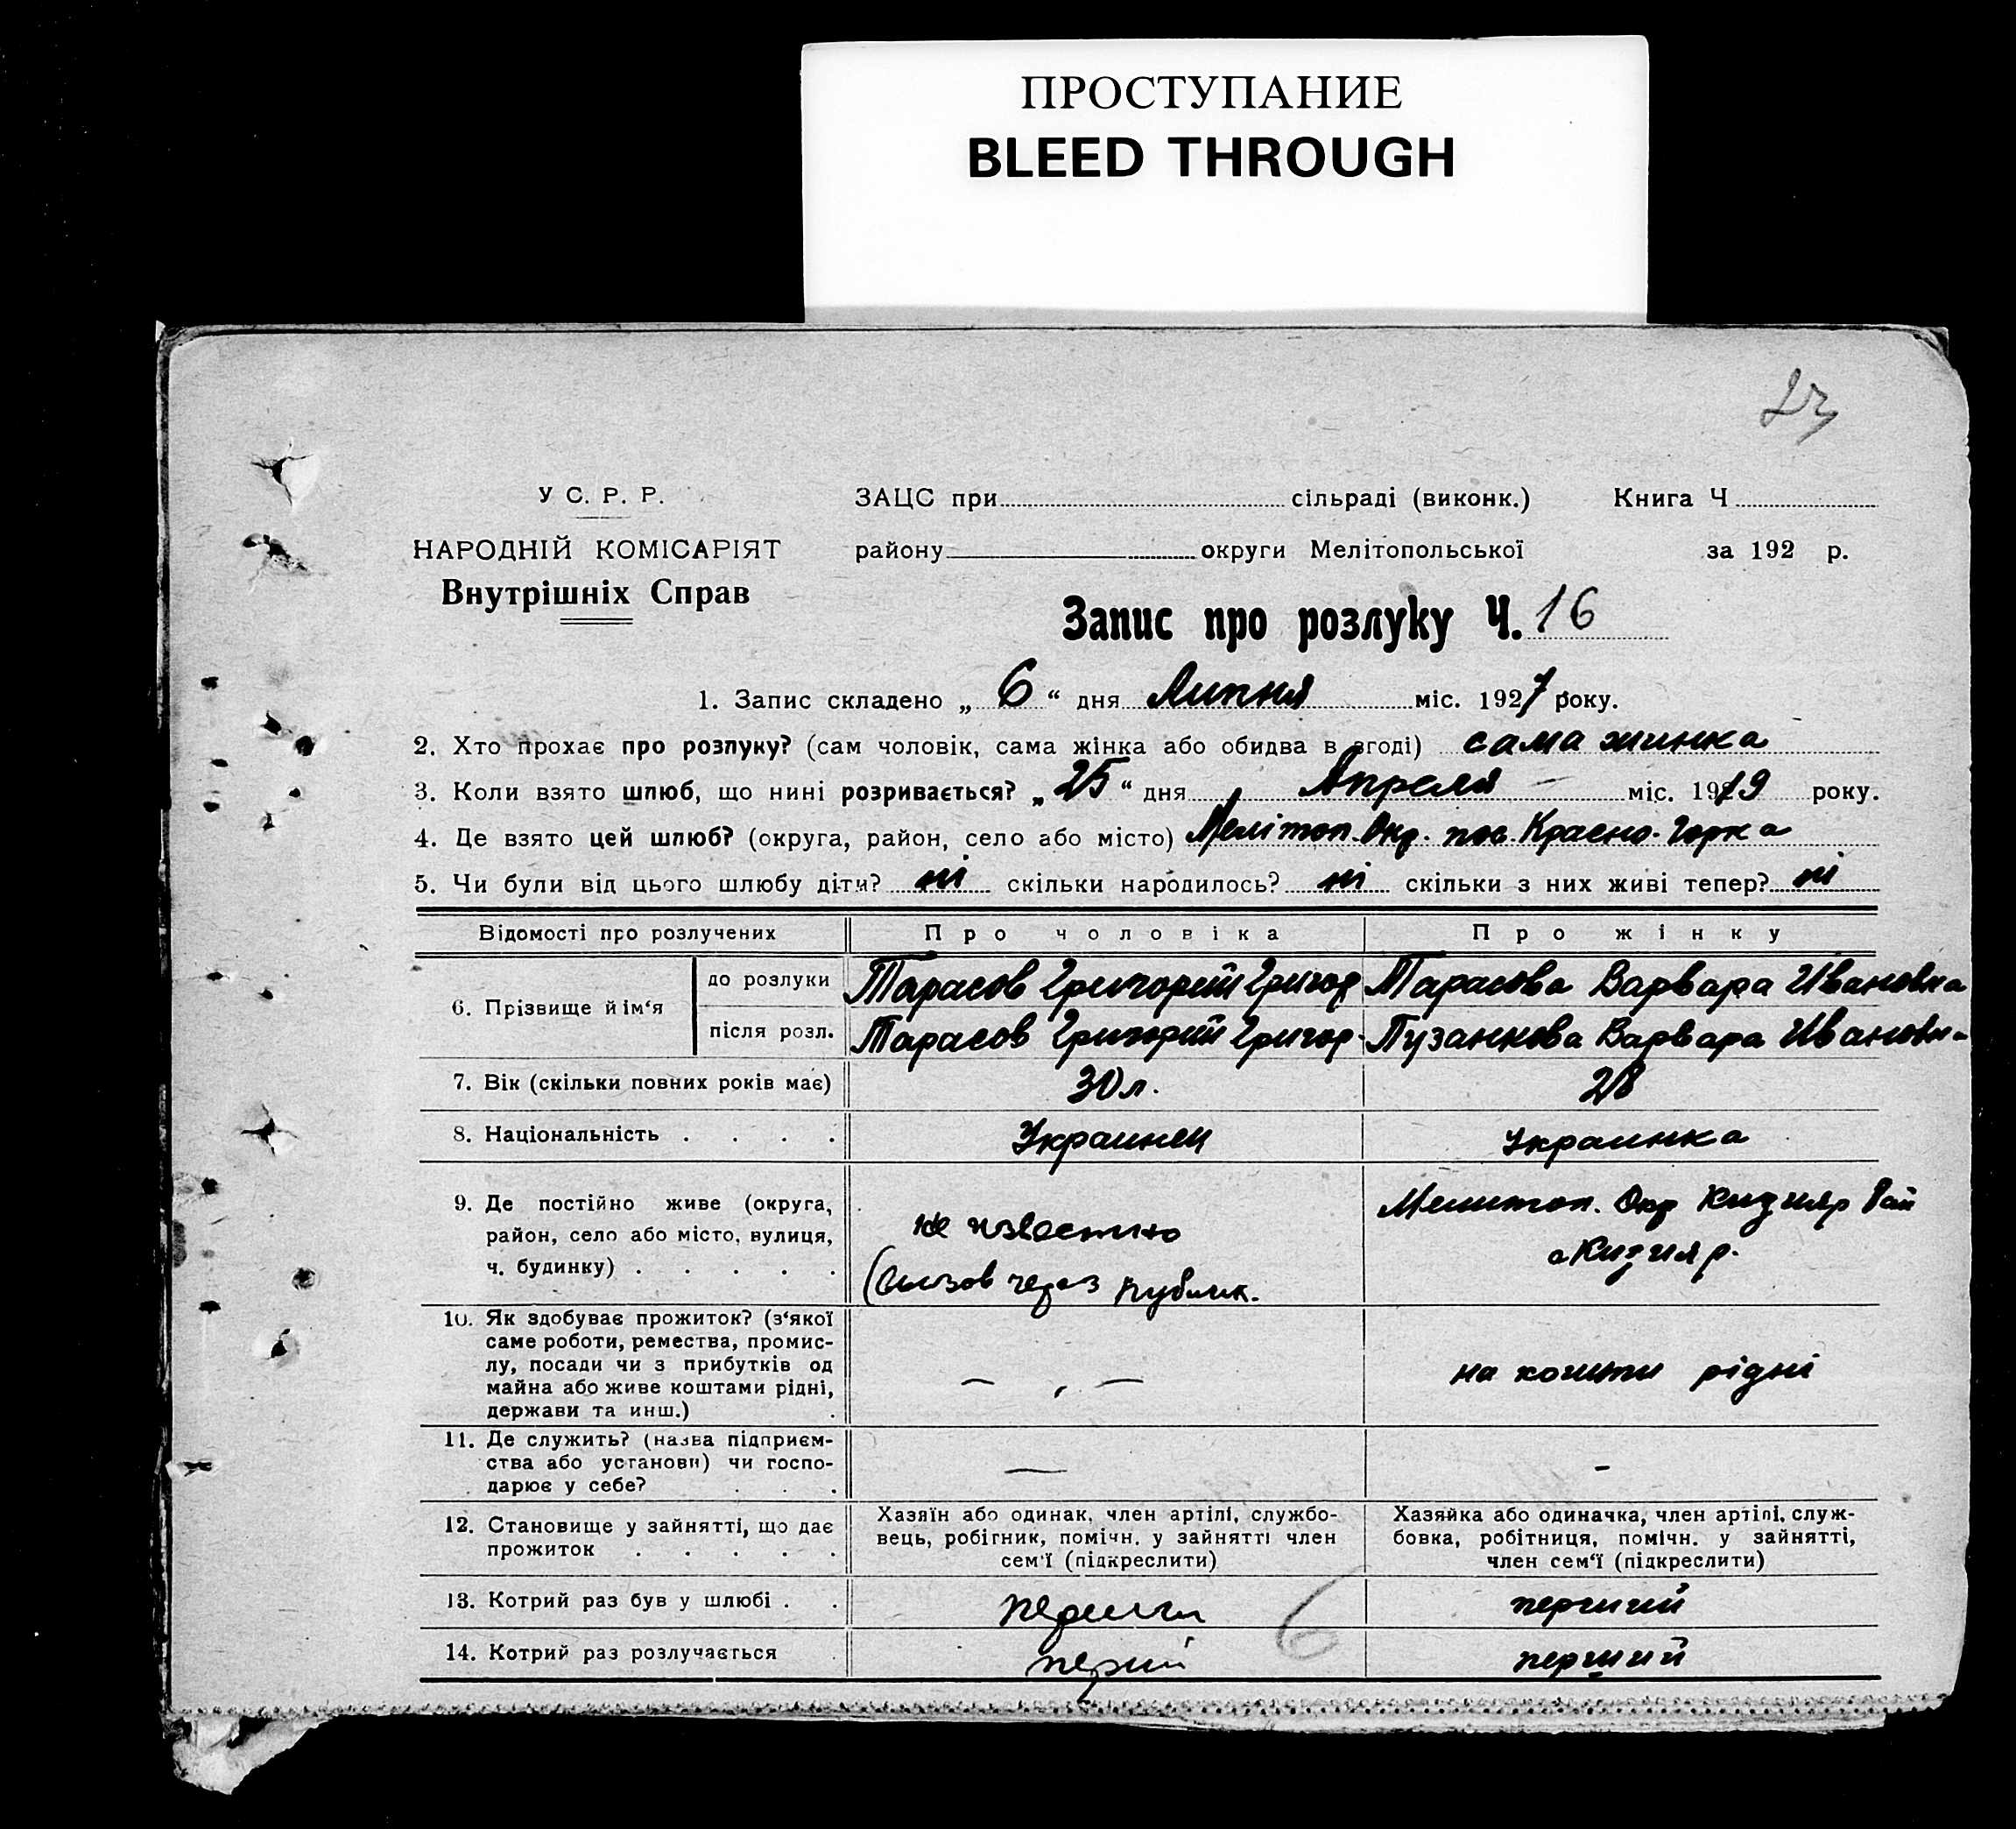 ПРОСТУПАНИЕ
BLEED THROUGH
23
У С. Р. Р.
НАРОДНІЙ КОМІСАРІЯТ
Внутрішніх Справ
ЗАЦС при сільраді (виконк.) Книга Ч
району округи Мелітопольської за 192 р.
Запис про розлуку Ч. 16
1. Запис складено „ 6 “ дня Липня міс. 1927 року.
2. Хто прохає про розлуку? (сам чоловік, сама жінка або обидва в згоді) сама жинка
3. Коли взято шлюб, що нині розривається? „ 25 “ дня Апреля міс. 1919 року.
4. Де взято цей шлюб? (округа, район, село або місто) Мелітоп. Окр. пос. Красно. Горка
5. Чи були від цього шлюбу діти? ні скільки народилось? ні скільки з них живі тепер? ні
Відомості про розлучених Про чоловіка Про жінку
6. Прізвище й ім‘я
до розлуки Тарасов Григорий Григор Тарасова Варвара Ивановна
після розл. Тарасов Григорий Григор. Пузанкова Варвара Ивановна
7. Вік (скільки повних років має) 30 л. 28
8. Національність . . . . Украинец Украинка
9. Де постійно живе (округа,
район, село або місто, вулиця,
ч. будинку) . . . . .
не известно
(Вызов через публик.
Мелитоп. Окр Кизияр Рай
с Кизияр.
10. Як здобуває прожиток? (з‘якої
саме роботи, ремества, промис-
лу, посади чи з прибутків од
майна або живе коштами рідні,
держави та инш.) .
— , —
на кошти рідні
11. Де служить? (назва підприєм-
ства або установи) чи госпо-
дарює у себе? . . .
—
-
12. Становище у зайнятті, що дає
прожиток . . . . .
Хазяїн або одинак, член артілі, службо-
вець, робітник, помічн. у зайнятті член
сем‘ї (підкреслити)
Хазяйка або одиначка, член артілі, служ-
бовка, робітниця, помічн. у зайнятті,
член сем‘ї (підкреслити)
13. Котрий раз був у шлюбі . . перший
14. Котрий раз розлучається перший
6